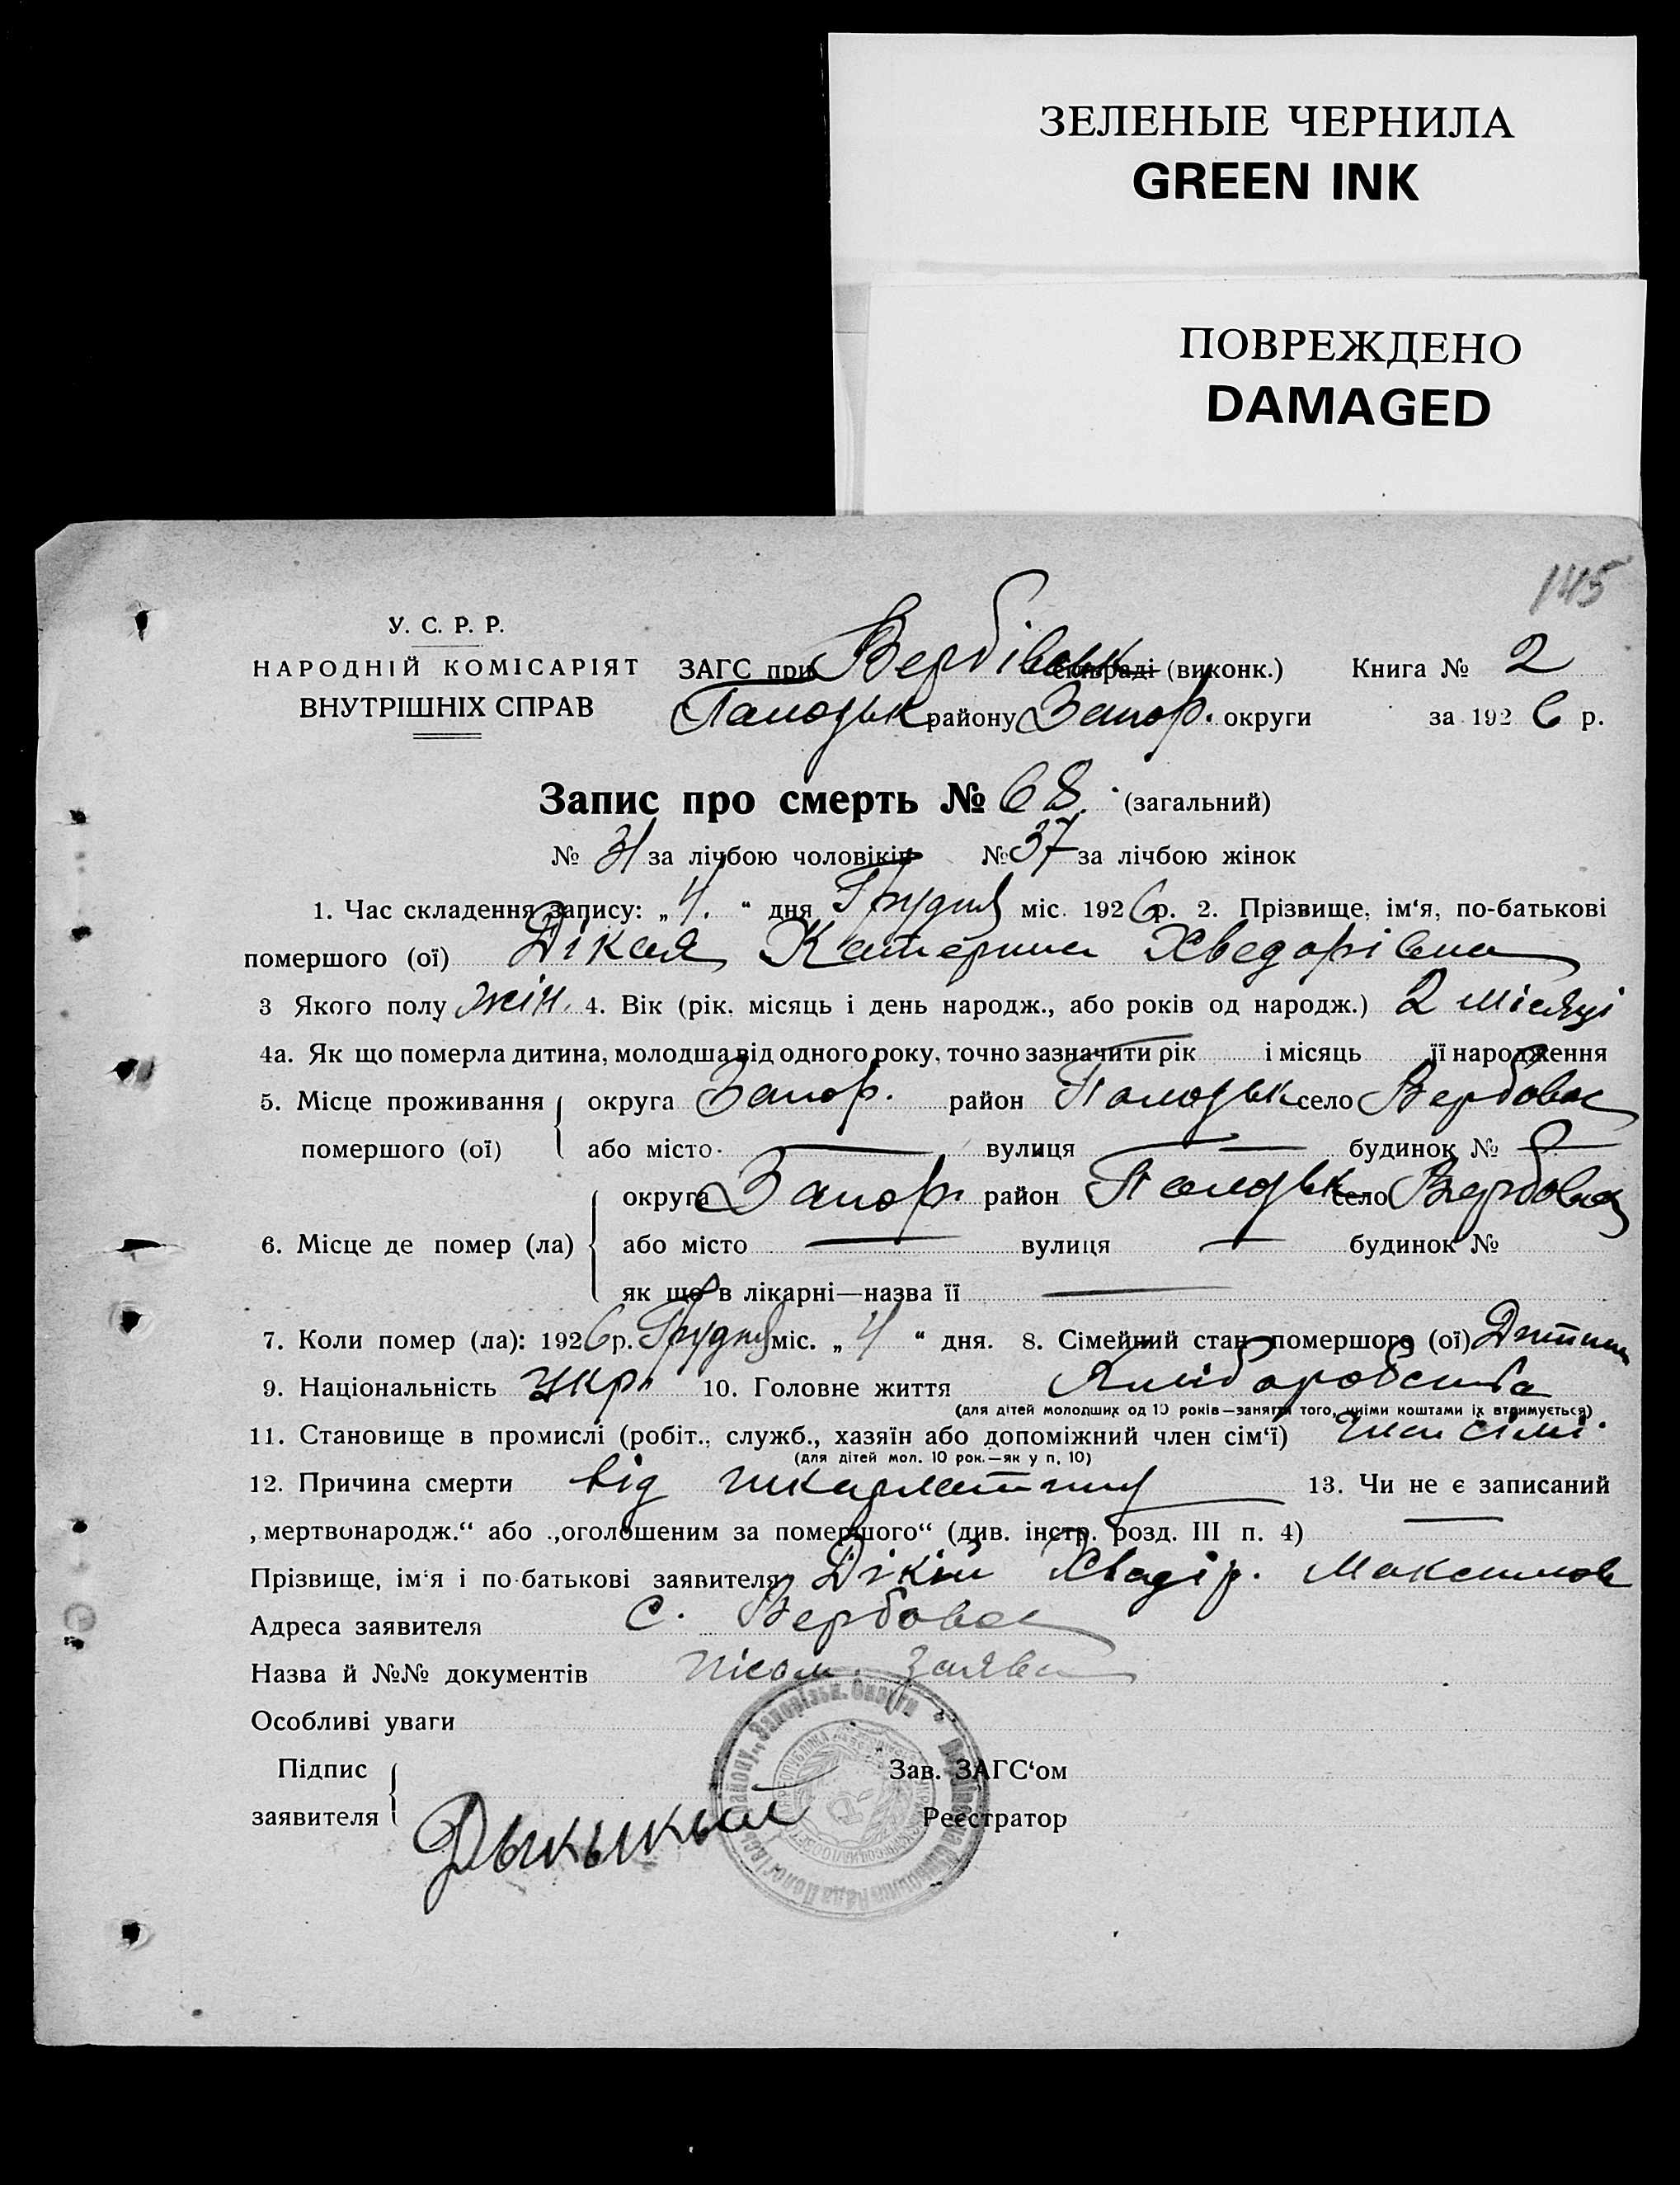 ЗЕЛЕНЫЕ ЧЕРНИЛА
GREEN INK
ПОВРЕЖДЕНО
DAMAGED
145
У. С. Р. Р.
НАРОДНІЙ КОМІСАРІЯТ
ВНУТРІШНІХ СПРАВ
ЗАГС при Вербівськ сільраді (виконк.) Книга № 2
Пологськ району Запор. округи за 1926 р.
Запис про смерть № 68 (загальний)
№ 31 за лічбою чоловіків № 37 за лічбою жінок
1. Час складення запису: „4.“ дня Грудня міс. 1926 р. 2. Прізвище, ім‘я, по-батькові
помершого (ої) Дікая Катерина Хведорівна
3 Якого полу жін. 4. Вік (рік. місяць і день народж., або років од народж.) 2 місяці
4а. Як що померла дитина, молодша від одного року, точно зазначити рік і місяць її народження
5. Місце проживання округа Запор. район Пологськ село Вербовое
помершого (ої) або місто — вулиця — будинок № —
округа Запор. район Пологськ село Вербовое
6. Місце де помер (ла) або місто — вулиця — будинок №
як що в лікарні—назва її —
7. Коли помер (ла): 1926 р. Грудня міс. „4“ дня. 8. Сімейний стан помершого (ої) Дитина
9. Національність Укр. 10. Головне життя
(для дітей молодших од 10 років—заняття того, чиїми коштами їх втримується)
11. Становище в промислі (робіт., служб., хазяїн або допоміжний член сім‘ї) член сімї
(для дітей мол. 10 рок.—як у п. 10)
12. Причина смерти від шкарлатини 13. Чи не є записаний
„мертвонародж.“ або „оголошеним за помершого“ (див. інстр. розд. III п. 4) —
Прізвище, ім‘я і по-батькові заявителя Дікій Хведір. Максимов
Адреса заявителя с. Вербовое
Назва й №№ документів письм. заява
Особливі уваги
Підпис Зав. ЗАГС‘ом
заявителя Реєстратор
Дыкыкый